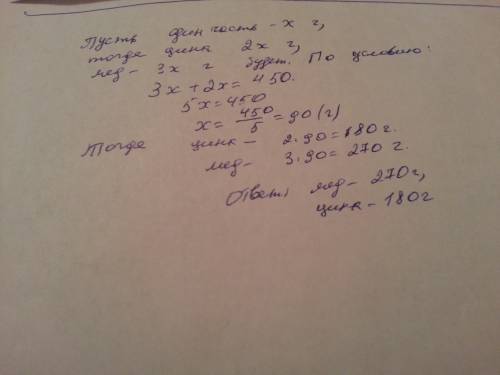 Пусть один часть - x г,
тогда цинка 2x г,
мед - 3x г будет. По условию:
3x + 2x = 450.
5x = 450
x = 450/5 = 90 (г)
Тогда цинка - 2·90 = 180 г.
мед - 3·90 = 270 г.
Ответ: мед - 270 г,
цинка - 180 г